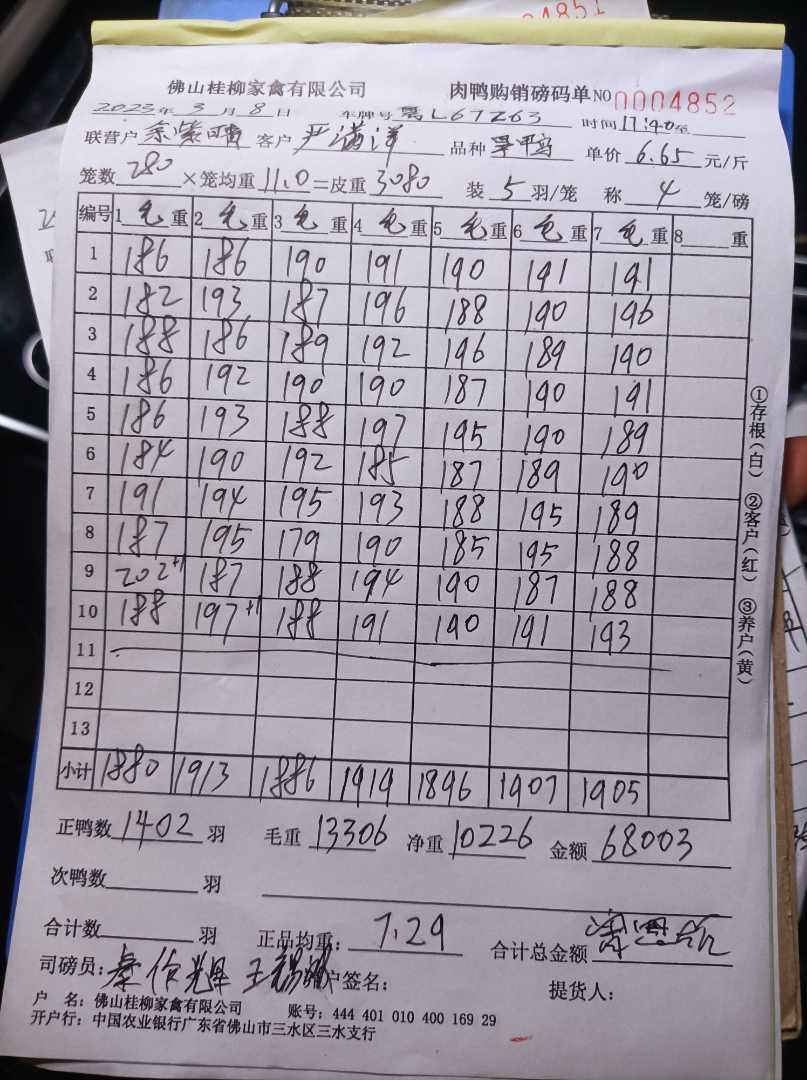 佛山桂柳家禽有限公司 肉鸭购销磅码单 NO 0004852
2023年3月8日 车牌号 L67Z63 时间17:40至
联营户 客户 严满洋 品种 单价 6.65 元/斤
笼数 280 ×笼均重 11.0 =皮重 3080 装 5 羽/笼 称 4 笼/磅
编号 1 毛 重 2 毛 重 3 毛 重 4 毛 重 5 毛 重 6 毛 重 7 毛 重 8 重
1 186 186 190 191 190 191 191
2 182 193 187 196 188 190 196
3 188 186 189 192 196 189 190
4 186 192 190 190 187 190 191
5 186 193 188 197 195 190 189
6 184 190 192 185 187 189 190
7 191 194 195 193 188 195 189
8 187 195 179 190 185 195 188
9 202+1 187 188 194 190 187 188
10 188 197+1 188 191 190 191 193
11
12
13
小计 1880 1913 1886 1919 1896 1907 1905
①存根(白) ②客户(红) ③养户(黄)
正鸭数 1402 羽 毛重 13306 净重 10226 金额 68003
次鸭数 羽
合计数 羽 正品均重: 7.29 合计总金额
司磅员: 秦作辉 王锡 户签名: 提货人:
户 名: 佛山桂柳家禽有限公司 账号: 444 401 010 400 169 29
开户行: 中国农业银行广东省佛山市三水区三水支行